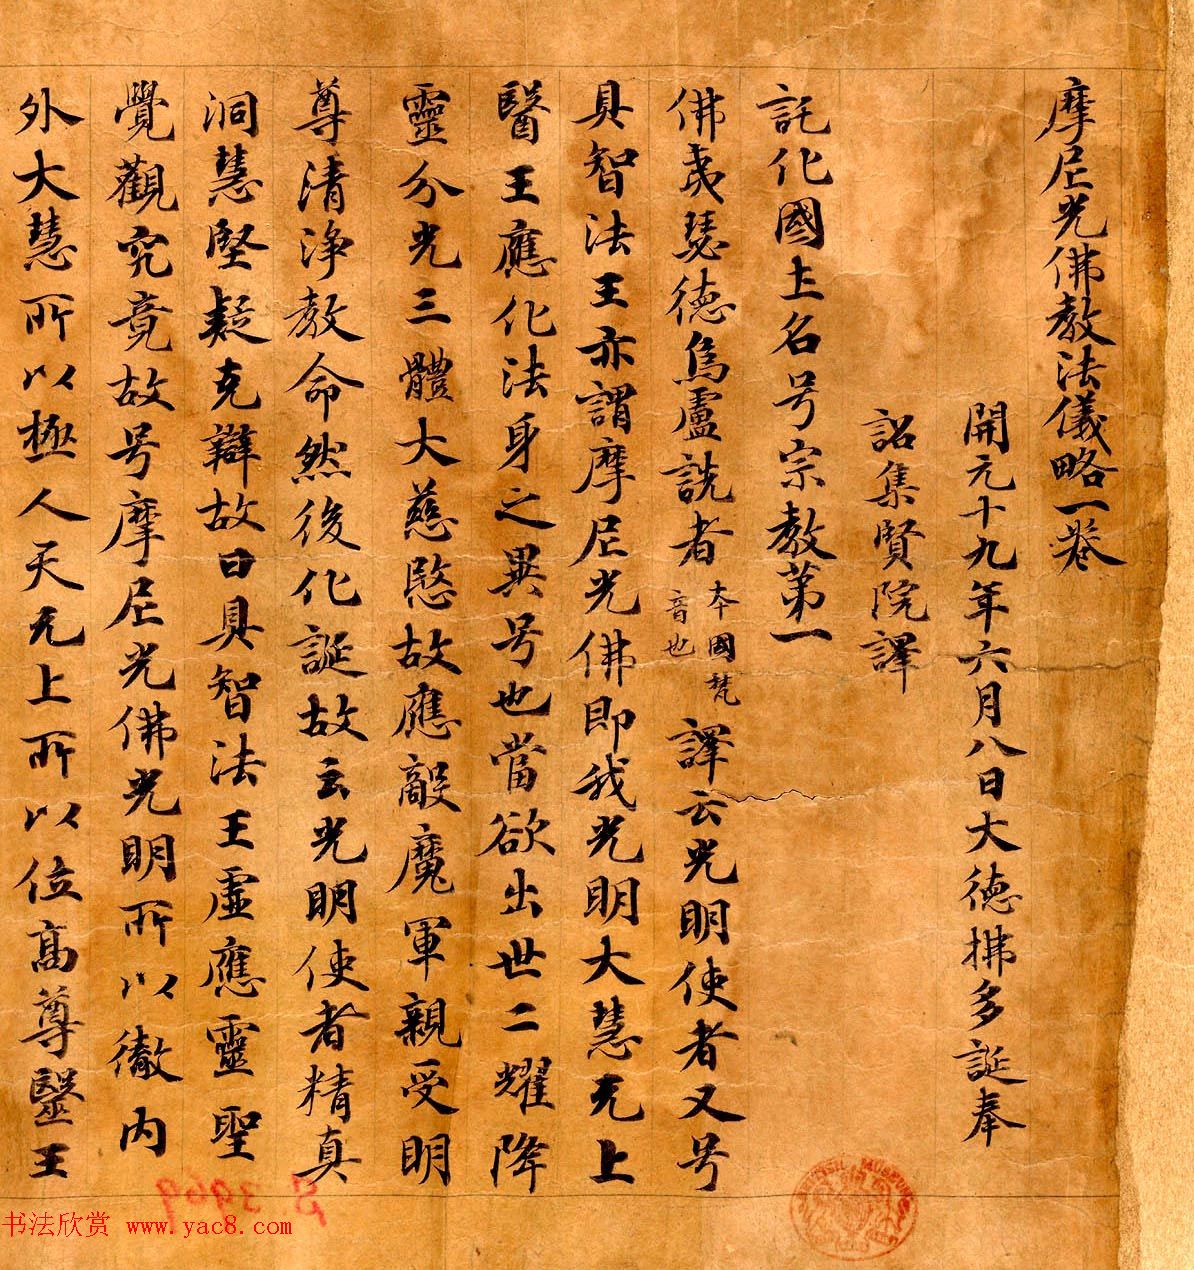 摩尼光佛教法儀略一卷
開元十九年六月八日大德拂多誕奉
詔集賢院譯
託化國主名号宗教第一
佛夷瑟德烏盧詵者本國梵音也譯云光明使者又号
具智法王亦謂摩尼光佛即我光明大慧无上
醫王應化法身之異号也當欲出世二耀降
靈分光三體大慈愍故應敵魔軍親受明
尊清淨教命然後化誕故云光明使者精真
洞慧堅疑克辯故曰具智法王虛應靈聖
覺觀究竟故号摩尼光佛光明所以徹內
外大慧所以極人天无上所以位高尊醫王
S. 3969
BRITISH MUSEUM
书法欣赏 www.yac8.com